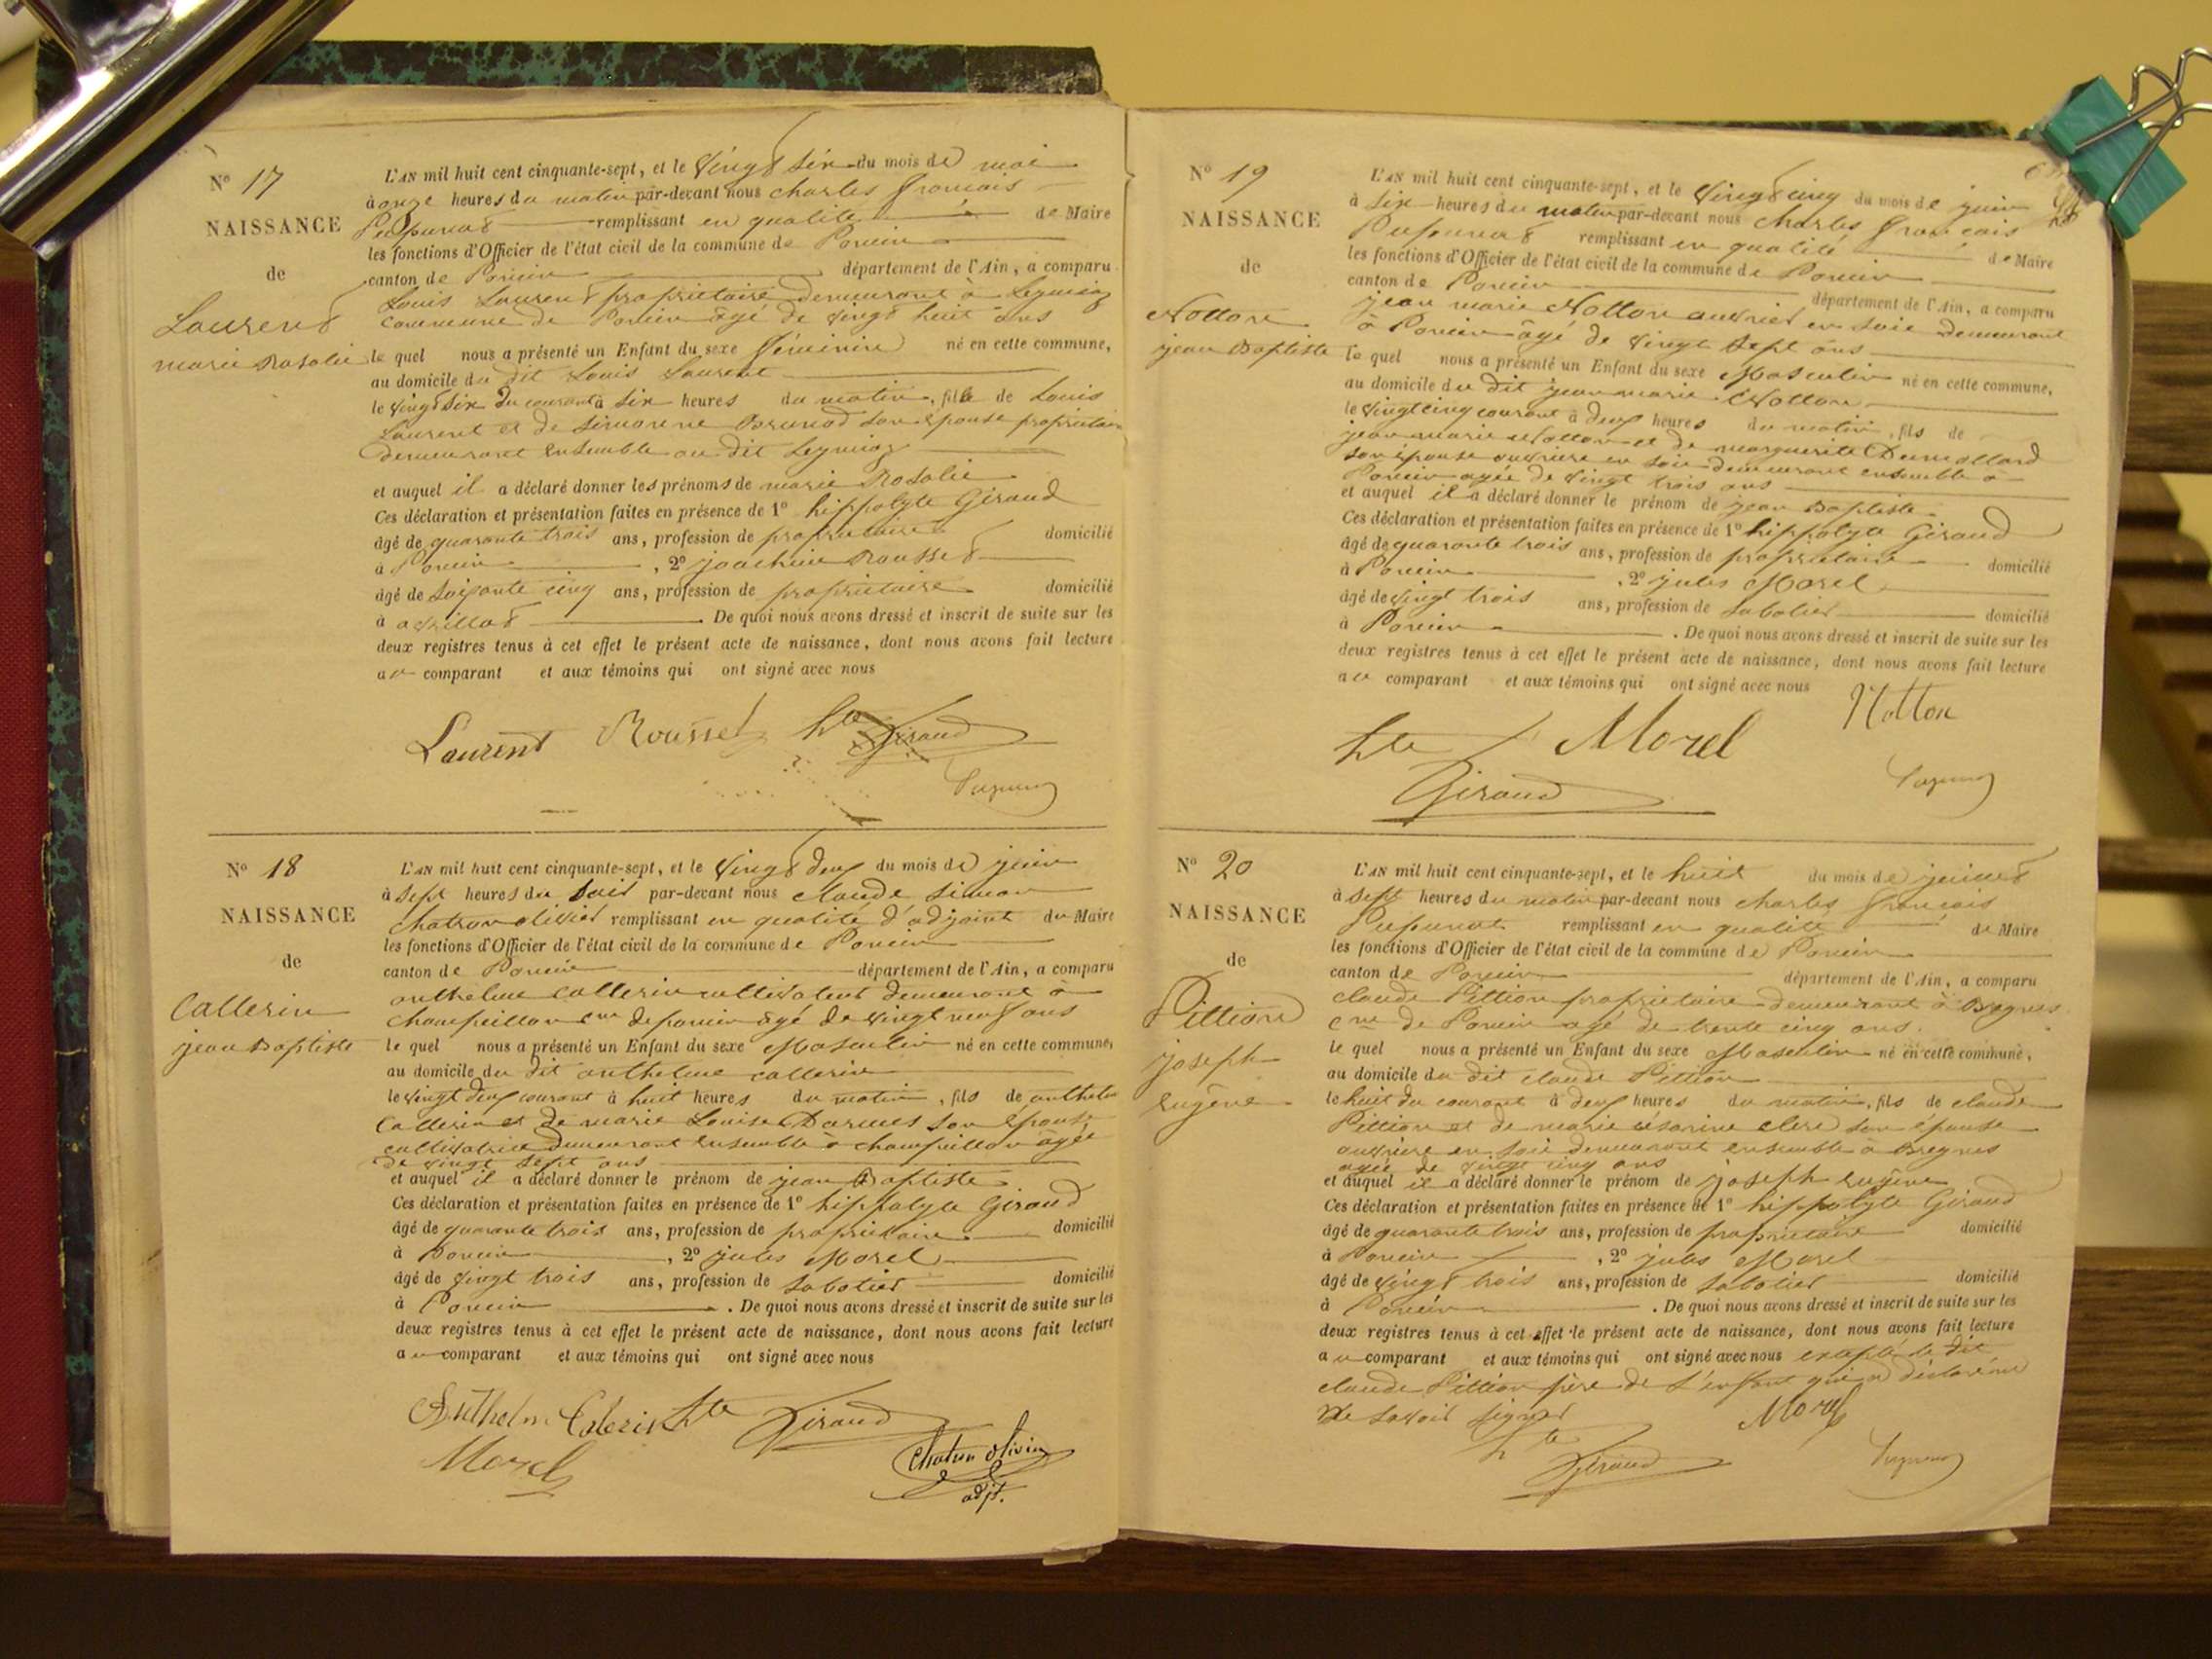 N° 17
NAISSANCE
de
Laurent
marie Rosalie
L'AN mil huit cent cinquante-sept, et le vingt six du mois de mai
à onze heures du matin par-devant nous charles francois
Pupunat remplissant en qualité de Maire
les fonctions d'Officier de l'état civil de la commune de Poncin
canton de Poncin département de l'Ain, a comparu
Louis Laurent propriétaire demeurant à Leymiaz
commune de Poncin âgé de vingt huit ans
le quel nous a présenté un Enfant du sexe féminin né en cette commune,
au domicile du dit Louis Laurent
le vingt six du courant à six heures du matin, fille de Louis
Laurent et de Simonne Brunod son épouse propriétaire
demeurant ensemble au dit Leymiaz
et auquel il a déclaré donner les prénoms de marie Rosalie
Ces déclaration et présentation faites en présence de 1° hippolyte Giraud
âgé de quarante trois ans, profession de propriétaire domicilié
à Poncin, 2° joachim Rousset
âgé de soixante cinq ans, profession de propriétaire domicilié
à avrillat. De quoi nous avons dressé et inscrit de suite sur les
deux registres tenus à cet effet le présent acte de naissance, dont nous avons fait lecture
au comparant et aux témoins qui ont signé avec nous
Laurent Rousset hte Giraud
Pupunat
N° 18
NAISSANCE
de
Callerin
jean Baptiste
L'AN mil huit cent cinquante-sept, et le vingt deux du mois de juin
à sept heures du soir par-devant nous claude simon
chatron olivier remplissant en qualité d'adjoint du Maire
les fonctions d'Officier de l'état civil de la commune de Poncin
canton de Poncin département de l'Ain, a comparu
anthelme callerin cultivateur demeurant à
champeillon cne de poncin âgé de vingt neuf ans
le quel nous a présenté un Enfant du sexe Masculin né en cette commune,
au domicile du dit anthelme callerin
le vingt deux courant à huit heures du matin, fils de anthelme
Callerin et de marie Louise Darmes son épouse
cultivatrice demeurant ensemble à champeillon âgée
de vingt sept ans
et auquel il a déclaré donner le prénom de jean Baptiste
Ces déclaration et présentation faites en présence de 1° hippolyte Giraud
âgé de quarante trois ans, profession de propriétaire domicilié
à Poncin, 2° jules Morel
âgé de vingt trois ans, profession de sabotier domicilié
à Poncin. De quoi nous avons dressé et inscrit de suite sur les
deux registres tenus à cet effet le présent acte de naissance, dont nous avons fait lecture
au comparant et aux témoins qui ont signé avec nous
Anthelm Calerin hte Giraud
Morel
Chatron olivier
adjt.
N° 19
NAISSANCE
de
Notton
jean Baptiste
L'AN mil huit cent cinquante-sept, et le vingt cinq du mois de juin
à six heures du matin par-devant nous charles francois
Pupunat remplissant en qualité de Maire
les fonctions d'Officier de l'état civil de la commune de Poncin
canton de Poncin département de l'Ain, a comparu
jean marie Notton ouvrier en soie demeurant
à Poncin âgé de vingt sept ans
le quel nous a présenté un Enfant du sexe Masculin né en cette commune,
au domicile du dit jean marie Notton
le vingt cinq courant à deux heures du matin, fils de
jean marie Notton et de marguerite Dumollard
son épouse ouvrière en soie demeurant ensemble à
Poncin agée de vingt trois ans
et auquel il a déclaré donner le prénom de jean Baptiste
Ces déclaration et présentation faites en présence de 1° hippolyte Giraud
âgé de quarante trois ans, profession de propriétaire domicilié
à Poncin, 2° jules Morel
âgé de vingt trois ans, profession de sabotier domicilié
à Poncin. De quoi nous avons dressé et inscrit de suite sur les
deux registres tenus à cet effet le présent acte de naissance, dont nous avons fait lecture
au comparant et aux témoins qui ont signé avec nous
Notton
hte Morel
Giraud
Pupunat
N° 20
NAISSANCE
de
Pittion
joseph
eugène
L'AN mil huit cent cinquante-sept, et le huit du mois de juillet
à sept heures du matin par-devant nous charles francois
Pupunat remplissant en qualité de Maire
les fonctions d'Officier de l'état civil de la commune de Poncin
canton de Poncin département de l'Ain, a comparu
claude Pittion propriétaire demeurant à Bregnes
cne de Poncin agé de trente cinq ans.
le quel nous a présenté un Enfant du sexe Masculin né en cette commune,
au domicile du dit claude Pittion
le huit du courant à deux heures du matin, fils de claude
Pittion et de marie césarine clerc son épouse
ouvrière en soie demeurant ensemble à Bregnes
agée de vingt cinq ans
et auquel il a déclaré donner le prénom de joseph eugène
Ces déclaration et présentation faites en présence de 1° hippolyte Giraud
âgé de quarante trois ans, profession de propriétaire domicilié
à Poncin, 2° jules Morel
âgé de vingt trois ans, profession de sabotier domicilié
à Poncin. De quoi nous avons dressé et inscrit de suite sur les
deux registres tenus à cet effet le présent acte de naissance, dont nous avons fait lecture
au comparant et aux témoins qui ont signé avec nous excepté le dit
claude Pittion père de l'enfant qui a déclaré ne
de savoir signer
Morel
hte Giraud
Pupunat